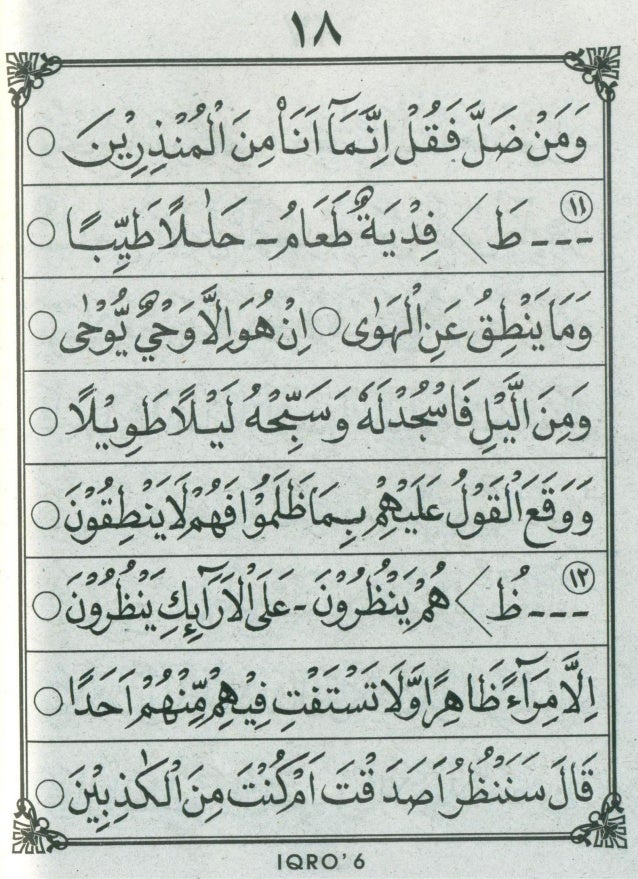 ١٨
وَمَنْ ضَلَّ فَقُلْ اِنَّمَآ اَنَا۠ مِنَ الْمُنْذِرِيْنَ ○
١١ --- طَ > فِدْيَةٌ طَعَامُ - حَلٰلًا طَيِّبًا ○
وَمَا يَنْطِقُ عَنِ الْهَوٰى ○ اِنْ هُوَ اِلَّا وَحْيٌ يُّوْحٰى ○
وَمِنَ الَّيْلِ فَاسْجُدْ لَهٗ وَسَبِّحْهُ لَيْلًا طَوِيْلًا ○
وَوَقَعَ الْقَوْلُ عَلَيْهِمْ بِمَا ظَلَمُوْا فَهُمْ لَا يَنْطِقُوْنَ ○
١٢ --- ظُ > هُمْ يَنْظُرُوْنَ - عَلَى الْاَرَآئِكِ يَنْظُرُوْنَ ○
اِلَّا مِرَآءً ظَاهِرًا وَّلَا تَسْتَفْتِ فِيْهِمْ مِّنْهُمْ اَحَدًا ○
قَالَ سَنَنْظُرُ اَصَدَقْتَ اَمْ كُنْتَ مِنَ الْكٰذِبِيْنَ ○
IQRO' 6